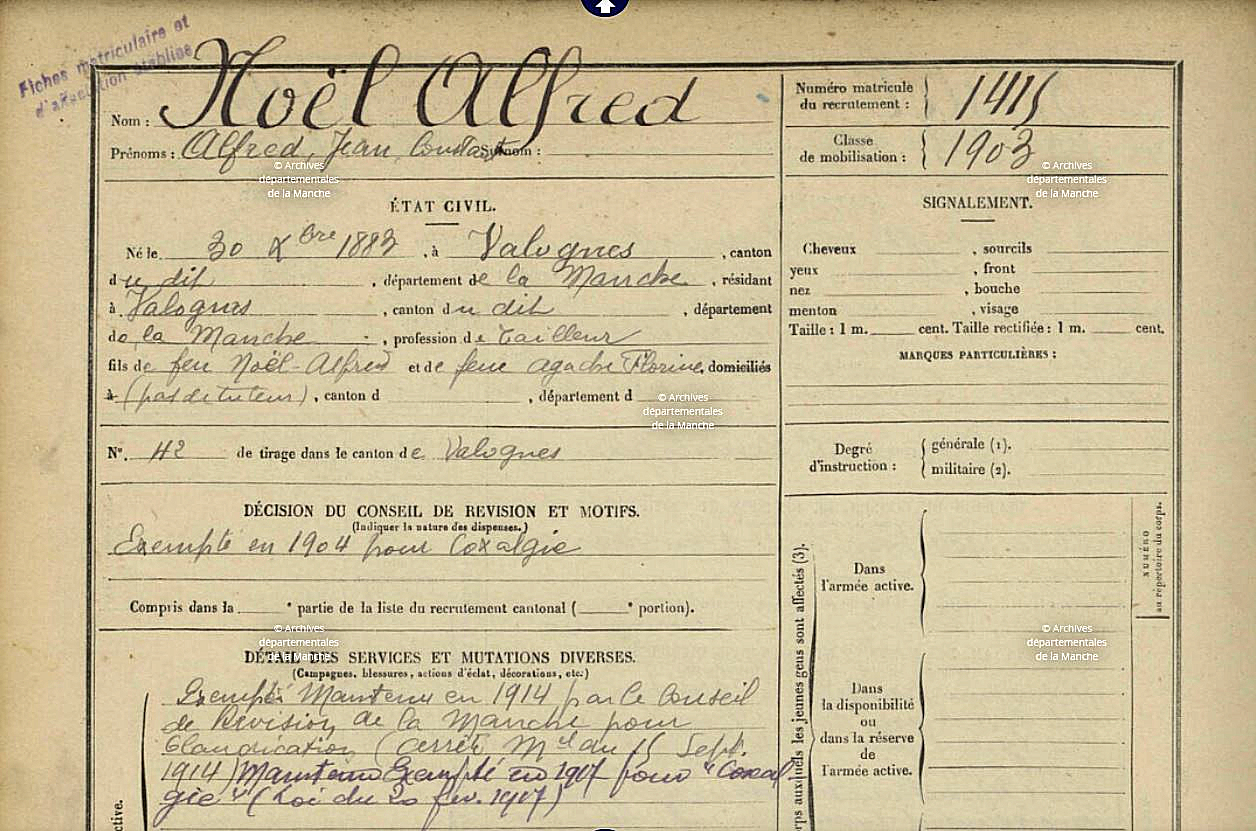 Fiches matriculaire et
d'affectation établies
Nom : Noël Alfred
Prénoms : Alfred, Jean, Constant Surnom :
Numéro matricule
du recrutement : 1415
Classe
de mobilisation : 1903
© Archives
départementales
de la Manche
© Archives
départementales
de la Manche
ÉTAT CIVIL.
Né le 30 Xbre 1883, à Valognes, canton
du dit, département de la Manche, résidant
à Valognes, canton du dit, département
de la Manche, profession de tailleur
fils de feu Noël-Alfred et de feue agache Florine, domiciliés
à (pas de tuteur), canton d , département d
© Archives
départementales
de la Manche
N°. 42 de tirage dans le canton de Valognes
SIGNALEMENT.
Cheveux , sourcils
yeux , front
nez , bouche
menton , visage
Taille : 1 m. cent. Taille rectifiée : 1 m. cent.
MARQUES PARTICULIÈRES :
Degré
d'instruction :
générale (1).
militaire (2).
DÉCISION DU CONSEIL DE REVISION ET MOTIFS.
(Indiquer la nature des dispenses.)
Exempté en 1904 pour Coxalgie
Compris dans la e partie de la liste du recrutement cantonal ( e portion).
© Archives
départementales
de la Manche
DÉTAIL DES SERVICES ET MUTATIONS DIVERSES.
(Campagnes, blessures, actions d'éclat, décorations, etc.)
Exempté Maintenu en 1914 par le Conseil
de Révision de la Manche pour
Claudication (arrêté Mel du 15 Sept.
1914) Maintenu Exempté en 1917 pour "Coxal-
gie" (Loi du 20 fév. 1917)
ctive.
rps auxquels les jeunes gens sont affectés (3).
Dans
l'armée active.
NUMÉRO
au répertoire du corps.
© Archives
départementales
de la Manche
Dans
la disponibilité
ou
dans la réserve
de
l'armée active.